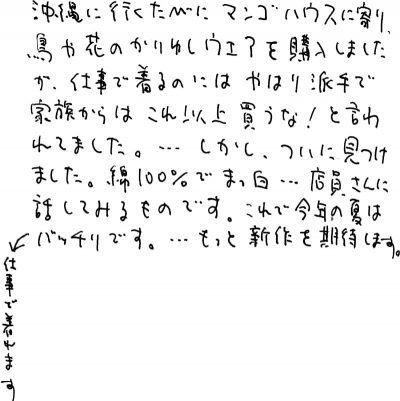 沖縄に行くたびに マンゴハウスに寄り、
鳥や花のかりゆしウエアを購入しました
が、仕事で着るのには やはり派手で
家族からは これ以上買うな！と言わ
れてました。… しかし、ついに見つけ
ました。綿100%でまっ白…店員さんに
話してみるものです。これで今年の夏は
バッチリです。… もっと新作を期待します。
仕事で着れます